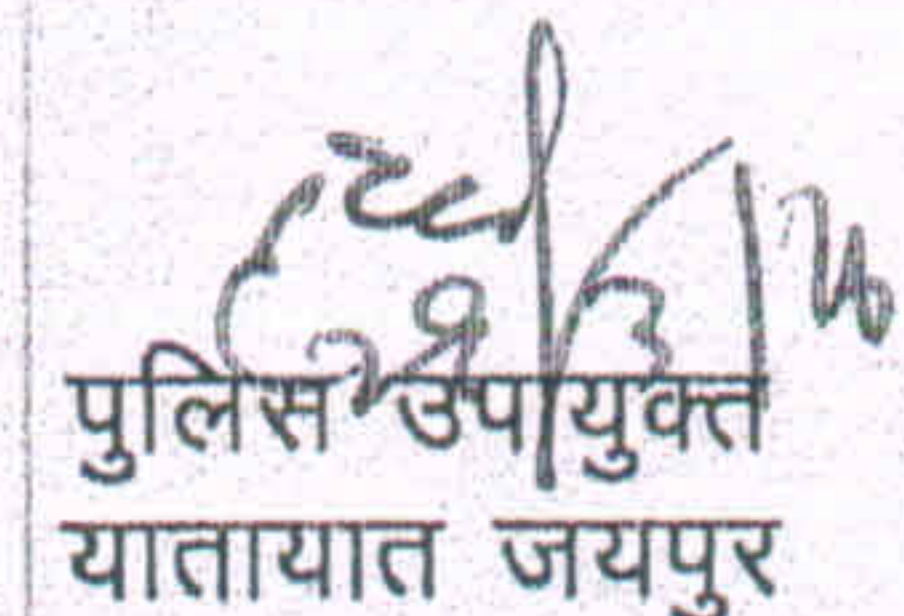 पुलिस उपायुक्त
यातायात जयपुर